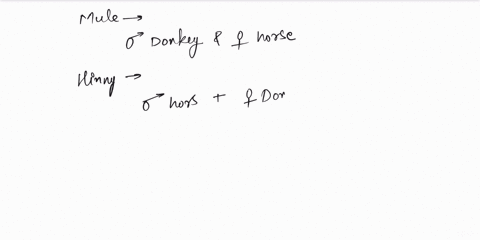 Mule →
♂ Donkey & ♀ horse
Hinny →
♂ hors + ♀ Don